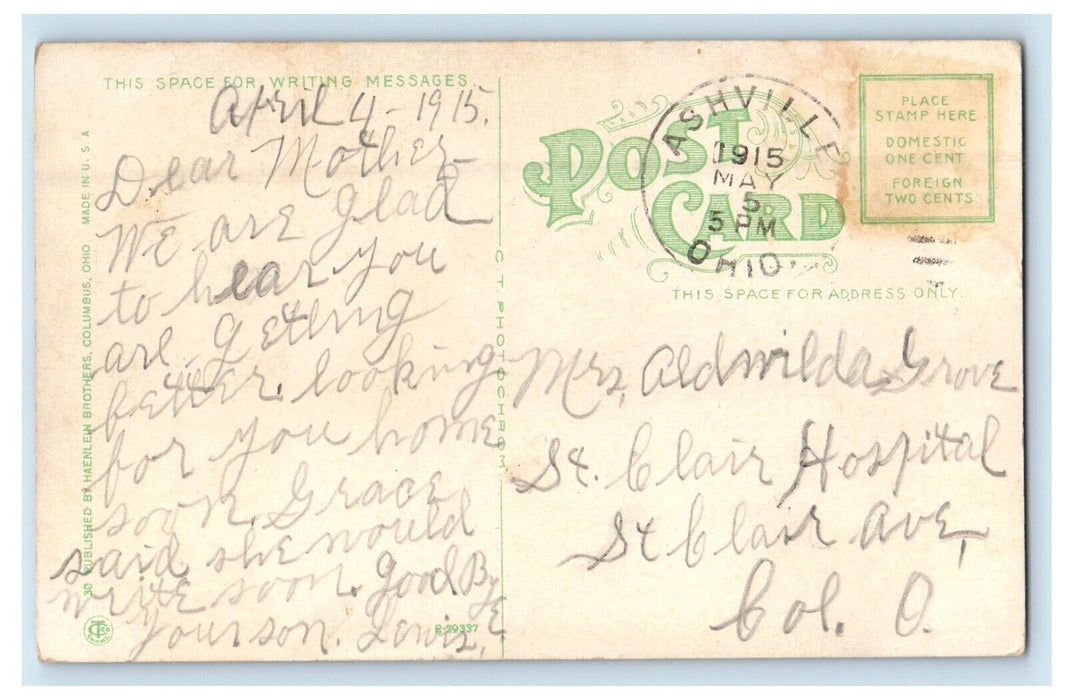 THIS SPACE FOR WRITING MESSAGES
April 4-1915.
Dear Mother
We are glad
to hear you
are getting
better. looking
for you home
soon. Grace
said she would
write soon. Good Bye
Your son. Lewis,
30 PUBLISHED BY HAENLEIN BROTHERS, COLUMBUS, OHIO MADE IN U. S. A
R-29337
C T PHOTOCHROM
POST CARD
ASHVILLE
1915
MAY
5
5 PM
OHIO
PLACE
STAMP HERE
DOMESTIC
ONE CENT
FOREIGN
TWO CENTS
THIS SPACE FOR ADDRESS ONLY.
Mrs, Aldwilda Grove
St. Clair Hospital
St Clair Ave,
Col. O.